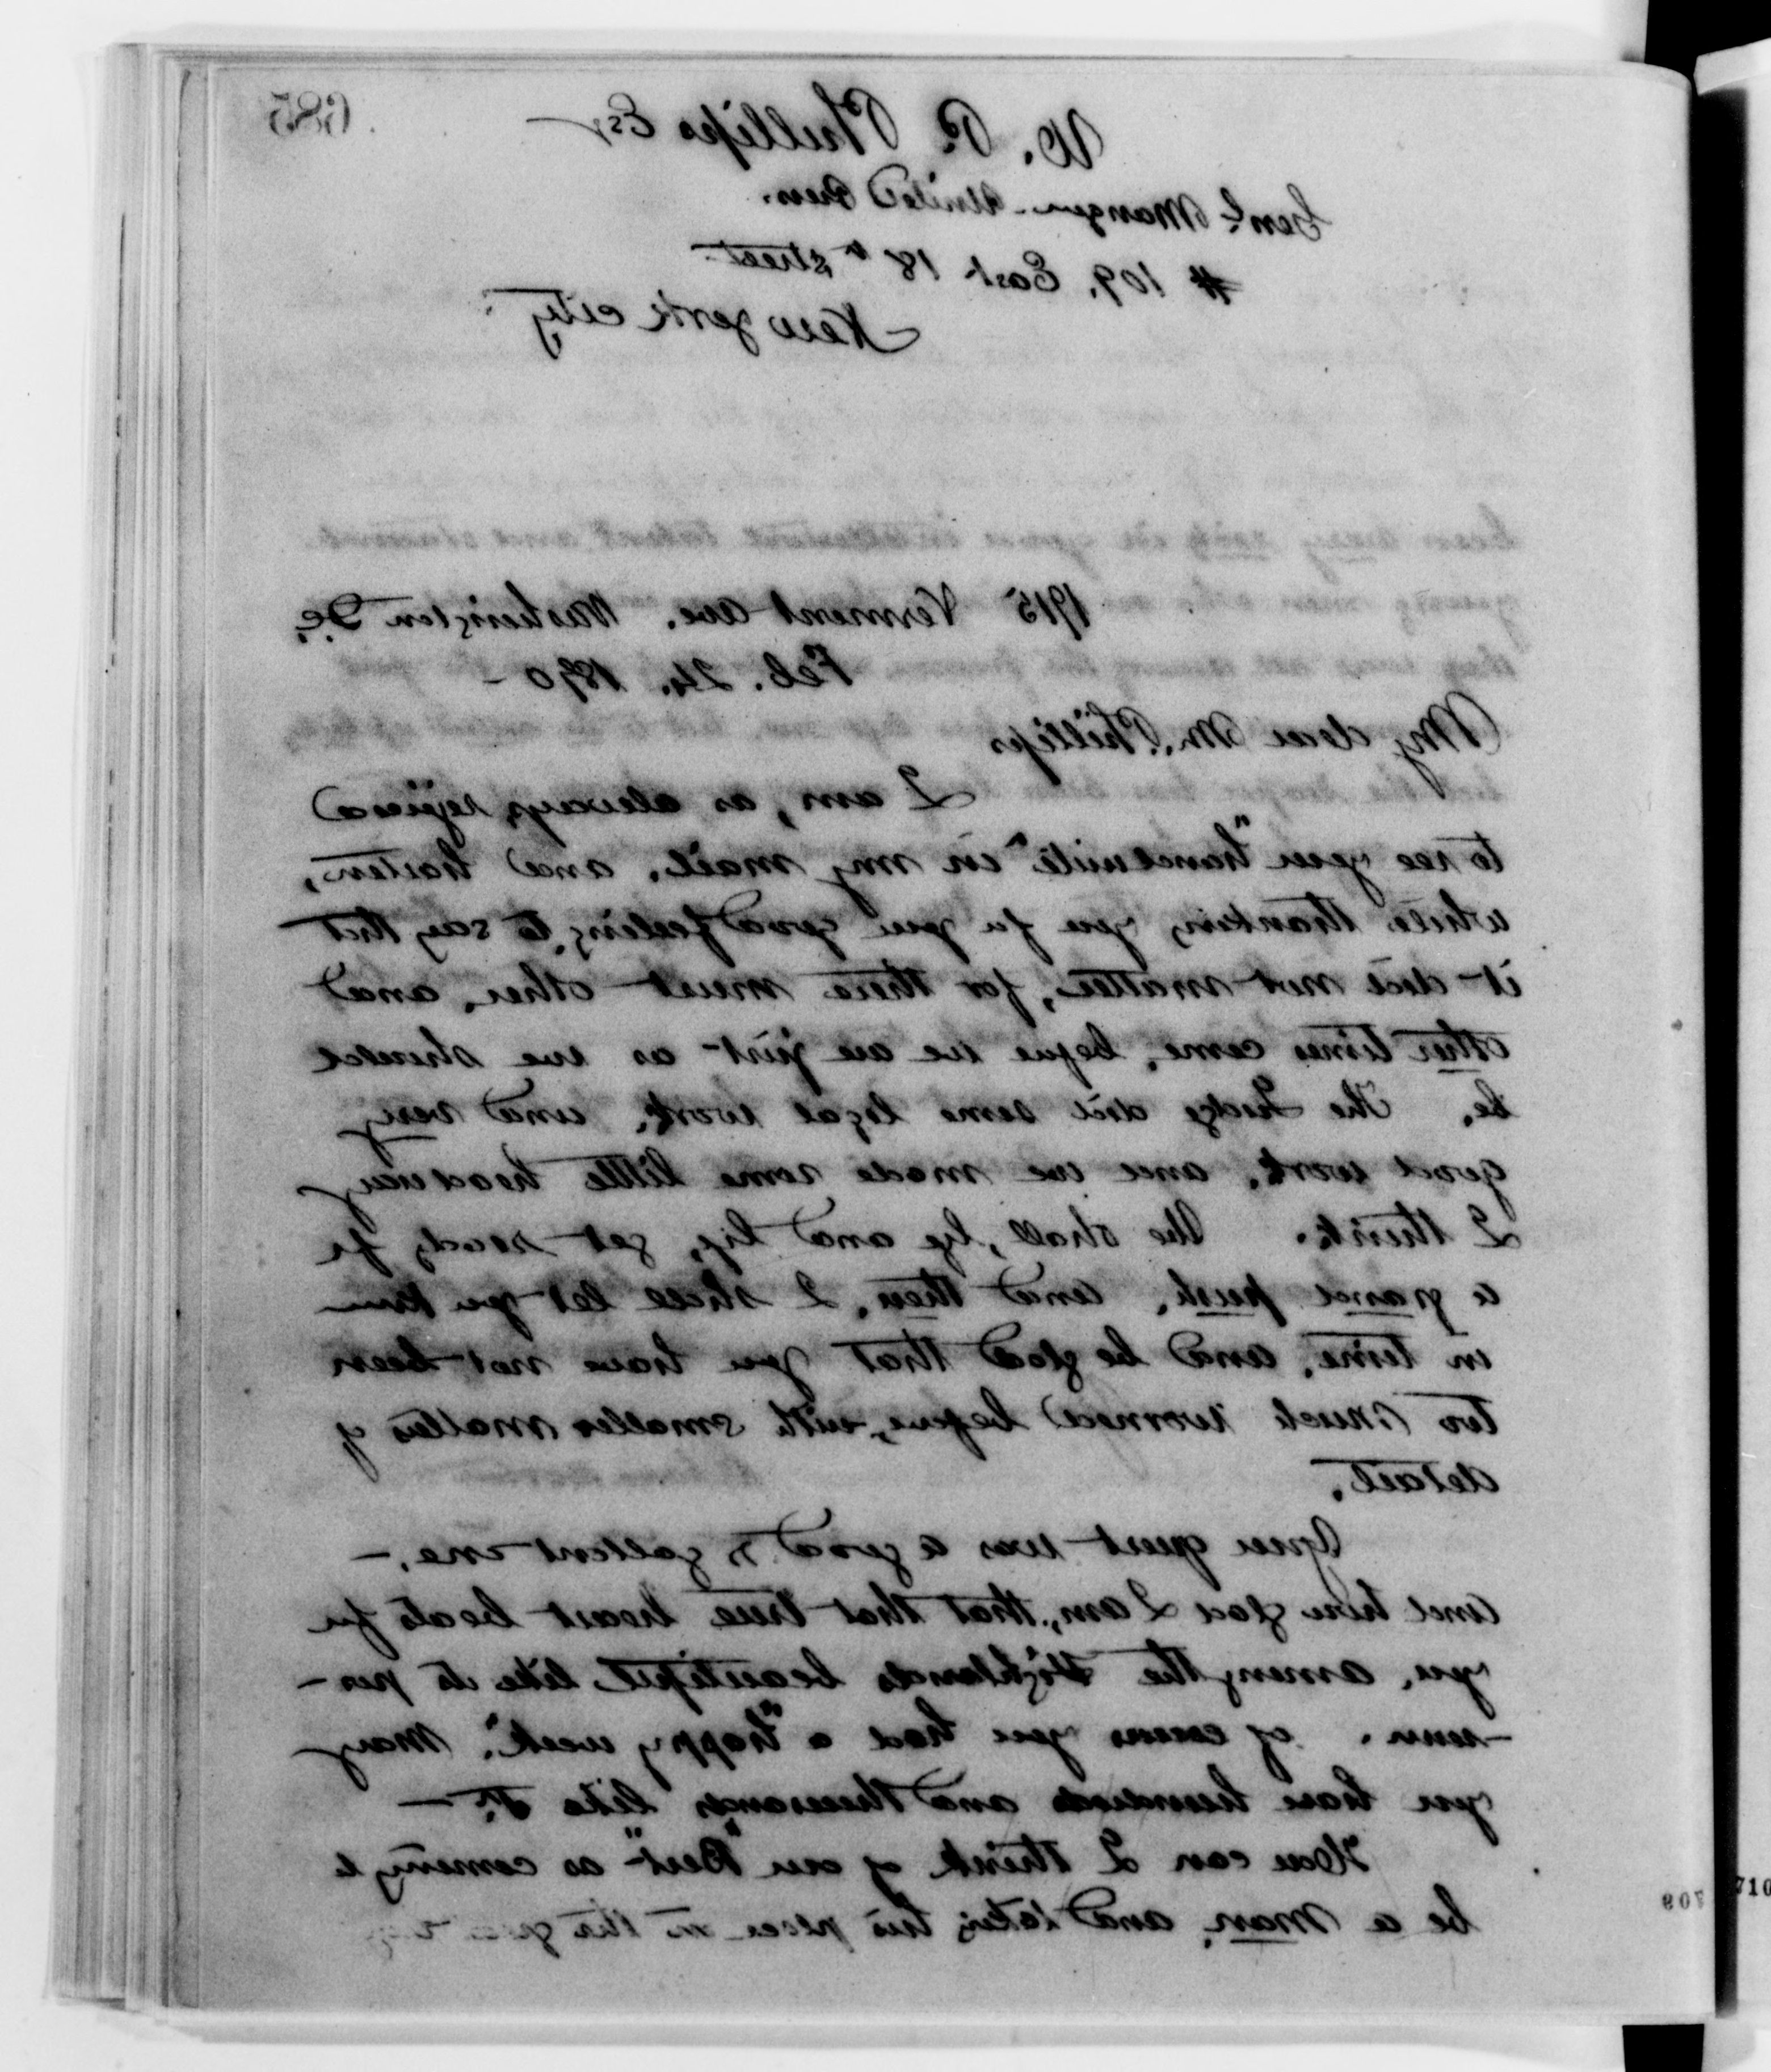 685
W. P. Phillips Esq
Genl. Manger United Press.
# 109, East 18th street
New york city
1915 Vermont Ave. Washington D.C.
Feb. 24. 1890 -
My dear Mr. Phillips
I am, as always, rejoiced
to see your "handwrite" in my mail, and hasten,
while thanking you for your good feeling, to say that
it did not matter, for there must other, and
other times come, before we are just as we should
be. The Judge did some legal work, and very
good work, and we made some little headway
I think. We shall, by and by, get ready for
a grand push, and then, I shall let you know
in time, and be glad that you have not been
too much worried before, with smaller matters of
detail.
Your guest was a good & gallant one, -
and how glad I am, that that true heart beats for
you, among the Highlands beautiful like its per-
-son. Of course you had a "happy week". May
you have hundreds and thousands like it. -
How can I think of our "Bert" as coming to
be a man, and taking his place in the great
708
710